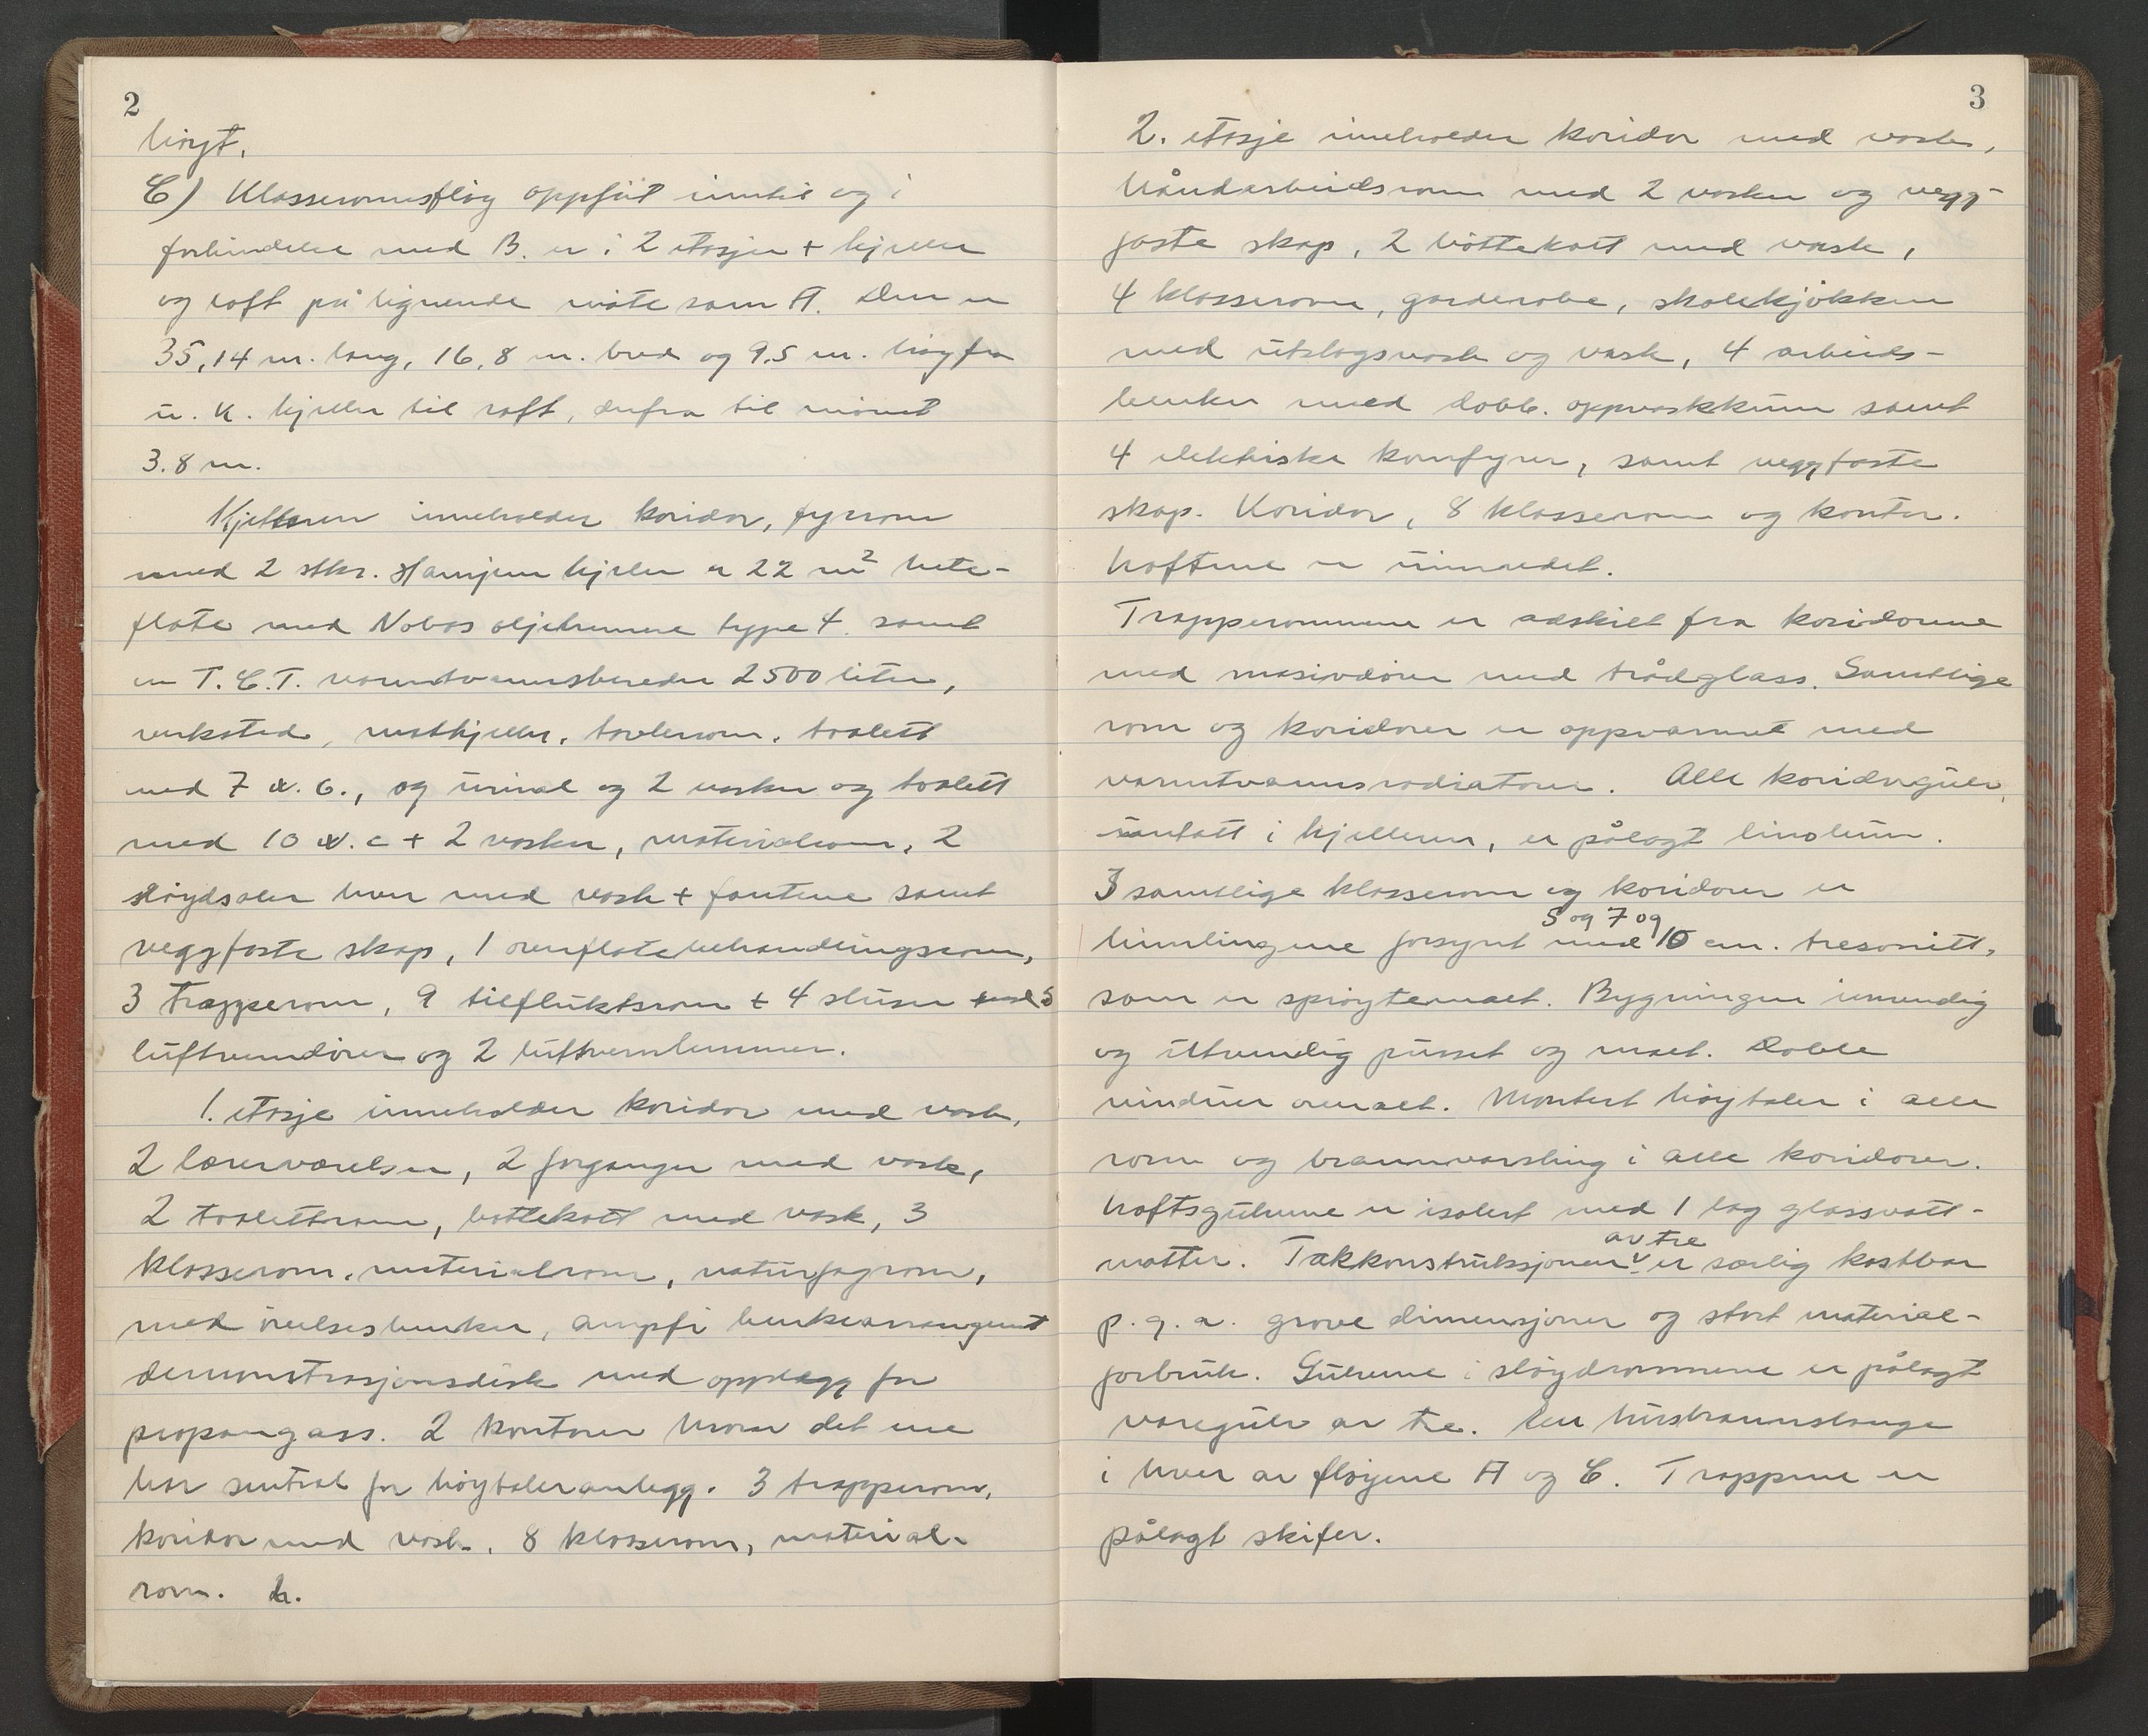 2
høyt.
C) Klasseromsfløy oppført inntil og i
forbindelse med B. er i 2 etasjer + kjeller
og loft på lignende måte som A. Den er
35,14 m. lang, 16,8 m. bred og 9,5 m. høy fra
u. k. kjeller til loft, derfra til mønet
3.8 m.
Kjelleren inneholder koridor, fyrrom
med 2 stkr. Hamjern kjeler a 22 m² hete-
flate med Nobøs oljebrennere type 4. samt
en T.C.T. varmtvannsbereder 2500 liter,
verksted, matkjeller, tavlerom, toalett
med 7 w.c., og urinal og 2 vasker og toalett
med 10 w.c + 2 vasker, materialrom, 2
sløydsaler hver med vask + fontene samt
veggfaste skap, 1 overflatebehandlingsrom,
3 trapperom, 9 tilfluktsrom + 4 sluser med 5
luftverndører og 2 luftvernlemmer.
1. etasje inneholder koridor med vask,
2 lærerværelser, 2 forganger med vask,
2 toalettrom, bøttekott med vask, 3
klasserom, materialrom, naturfagrom,
med øvelsesbenker, ampfi benkearrangement
demonstrasjonsdisk med opplegg for
propangass. 2 kontorer hvorav det ene
har sentral for høytaleranlegg. 3 trapperom,
koridor med vask, 8 klasserom, material-
rom. h.
3
2. etasje inneholder koridor med vask,
håndarbeidsrom med 2 vasker og vegg-
faste skap, 2 bøttekott med vask,
4 klasserom, garderobe, skolekjøkken
med utslagsvask og vask, 4 arbeids-
benker med dobb. oppvaskkum samt
4 elektriske komfyrer, samt veggfaste
skap. Koridor, 8 klasserom og kontor.
Loftene er uinnredet.
Trapperommene er adskilt fra koridorene
med masivdører med trådglass. Samtlige
rom og koridorer er oppvarmet med
varmtvannsradiatorer. Alle koridorgulv,
unntatt i kjelleren, er pålagt linoleum.
I samtlige klasserom og koridorer er
5 og 7 og
himlingene forsynt med 10 cm. tresonitt,
som er sprøytemalt. Bygningen innvendig
og utvendig pusset og malt. Doble
vinduer overalt. Montert høytaler i alle
rom og brannvarsling i alle koridorer.
Loftsgulvene er isolert med 1 lag glassvatt-
av tre
matter. Takkonstruksjonen er særlig kostbar
p.g.a. grove dimensjoner og stort material-
forbruk. Gulvene i sløydrommene er pålagt
varegulv av tre. En husbrannslange
i hver av fløyene A og C. Trappene er
pålagt skifer.